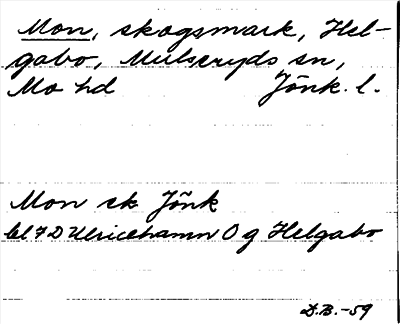 Mon, skogsmark, Hel-
gabo, Mulseryds sn,
Mo hd Jönk. l.
Mon sk Jönk
bl 7D Ulricehamn Og Helgabo
D.B.-59